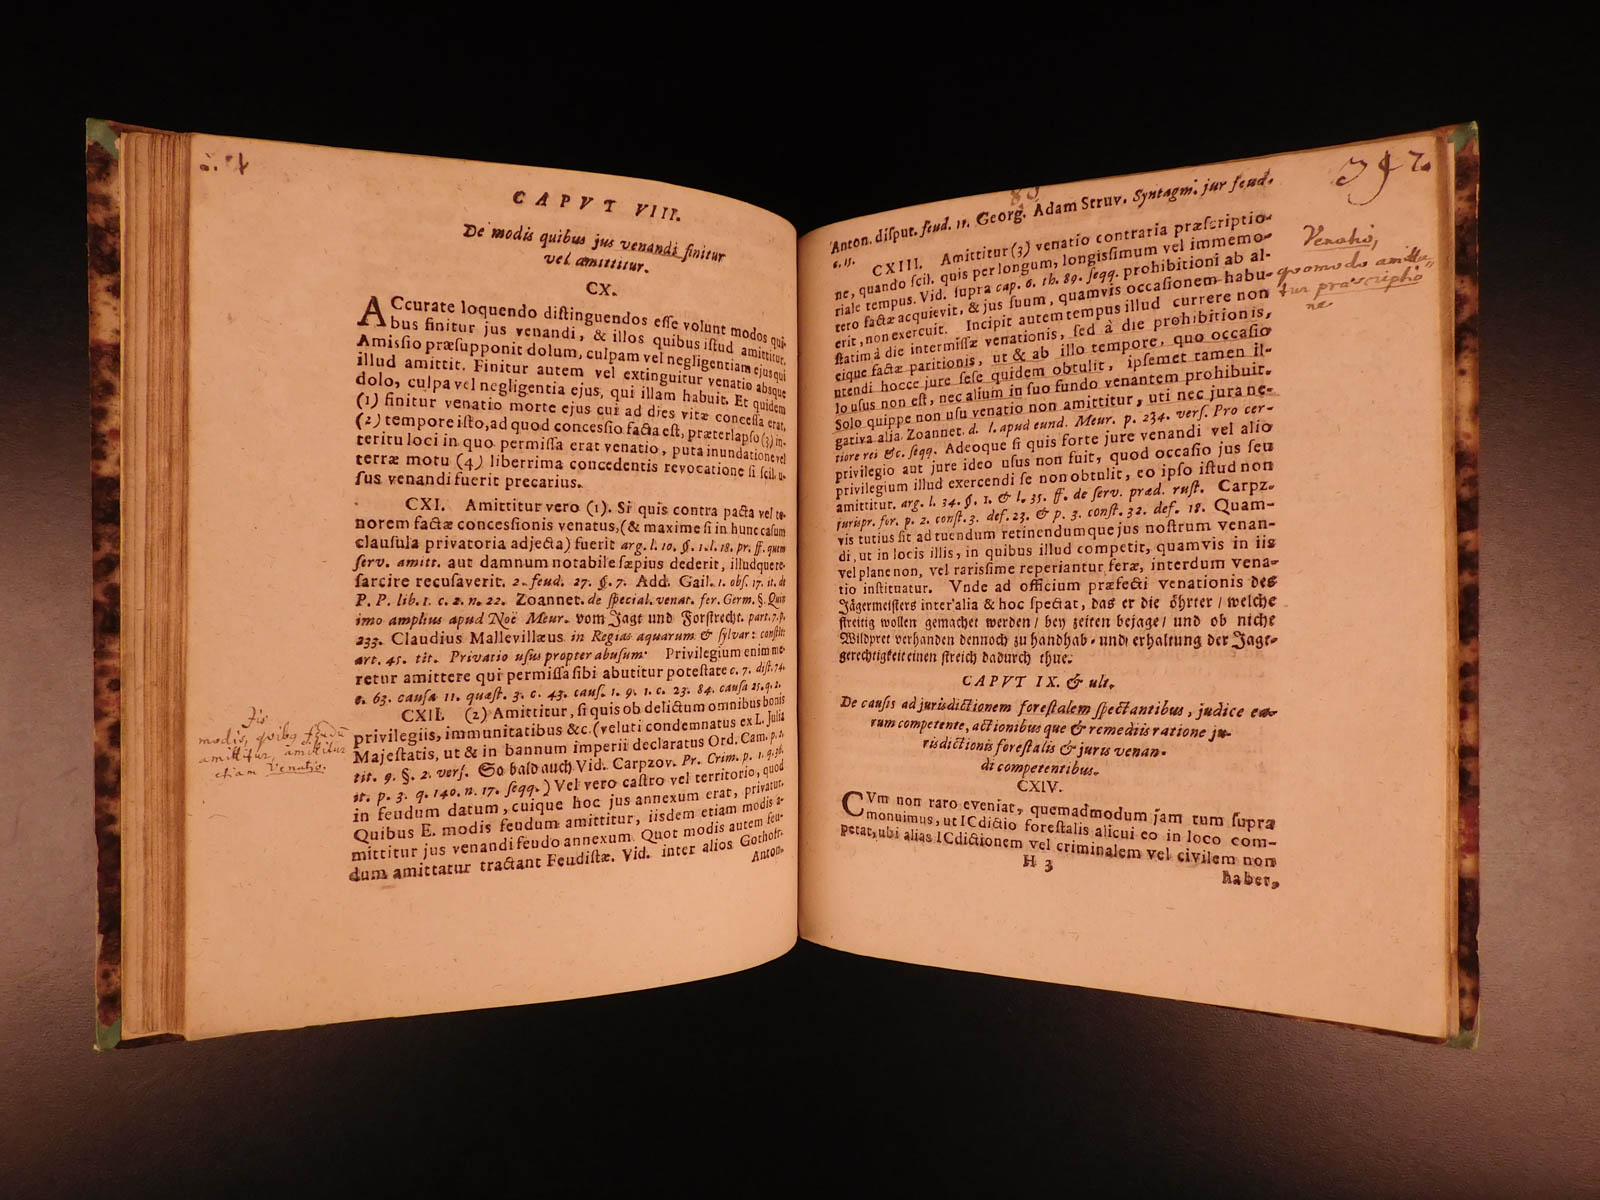 CAPVT VIII.
De modis quibus jus venandi finitur
vel amittitur.
CX.
ACcurate loquendo distinguendos esse volunt modos qui-
bus finitur jus venandi, & illos quibus istud amittitur.
Amissio præsupponit dolum, culpam vel negligentiam ejus qui
illud amittit. Finitur autem vel extinguitur venatio absque
dolo, culpa vel negligentia ejus, qui illam habuit. Et quidem
(1) finitur venatio morte ejus cui ad dies vitæ concessa erat,
(2) tempore isto, ad quod concessio facta est, præterlapso (3) in-
teritu loci in quo permissa erat venatio, puta inundatione vel
terræ motu (4) liberrima concedentis revocatione si scil. u-
sus venandi fuerit precarius.
CXI. Amittitur vero (1). Si quis contra pacta vel te-
norem factæ concessionis venatus, (& maxime si in hunc casum
clausula privatoria adjecta) fuerit arg. l. 10. §. 1. l. 18. pr. ff. quem
serv. amitt. aut damnum notabile sæpius dederit, illudque re-
sarcire recusaverit. 2. feud. 27. §. 7. Add. Gail. 1. obs. 17. it. de
P. P. lib. 1. c. 2. n. 22. Zoannet. de special. venat. fer. Germ. §. Quin
imo amplius apud Noë Meur. vom Jagt und Forstrecht. part. 7. p.
233. Claudius Mallevillæus in Regias aquarum & sylvar: constit:
art. 45. tit. Privatio usus propter abusum: Privilegium enim me-
retur amittere qui permissa sibi abutitur potestate c. 7. dist. 74.
c. 63. causa 11. quæst. 3. c. 43. caus. 1. q. 1. c. 23. 84. causa 25. q. 2.
CXII. (2) Amittitur, si quis ob delictum omnibus bonis
privilegiis, immunitatibus &c. (veluti condemnatus ex L. Julia
Majestatis, ut & in bannum imperii declaratus Ord. Cam. p. 2.
tit. 9. §. 2. vers. So bald auch Vid. Carpzov. Pr. Crim. p. 1. q. 36.
it. p. 3. q. 140. n. 17. seqq.) Vel vero castro vel territorio, quod
in feudum datum, cuique hoc jus annexum erat, privatur.
Quibus E. modis feudum amittitur, iisdem etiam modis a-
mittitur jus venandi feudo annexum. Quot modis autem feu-
dum amittatur tractant Feudistæ. Vid. inter alios Gothofr.
Anton.
modis, quibus feudū
amittitur, amittitur
etiam Venatio.
Anton. disput. feud. 11. Georg. Adam Struv. Syntagm. jur feud.
c. 15.
CXIII. Amittitur (3) venatio contraria præscriptio-
ne, quando scil. quis per longum, longissimum vel immemo-
riale tempus. Vid. supra cap. 6. th. 89. seqq. prohibitioni ab al-
tero factæ acquievit, & jus suum, quamvis occasionem habu-
erit, non exercuit. Incipit autem tempus illud currere non
statim à die intermissæ venationis, sed à die prohibitionis,
eique factæ paritionis, ut & ab illo tempore, quo occasio
utendi hocce jure sese quidem obtulit, ipsemet tamen il-
lo usus non est, nec alium in suo fundo venantem prohibuit.
Solo quippe non usu venatio non amittitur, uti nec jura ne-
gativa alia. Zoannet. d. l. apud eund. Meur. p. 234. vers. Pro cer-
tiore rei &c. seqq. Adeoque si quis forte jure venandi vel alio
privilegio aut jure ideo usus non fuit, quod occasio jus seu
privilegium illud exercendi se non obtulit, eo ipso istud non
amittitur. arg. l. 34. §. 1. & l. 35. ff. de serv. præd. rust. Carpz.
jurispr. for. p. 2. const. 3. def. 23. & p. 3. const. 32. def. 18. Quam-
vis tutius sit ad tuendum retinendumque jus nostrum venan-
di, ut in locis illis, in quibus illud competit, quamvis in iis
vel plane non, vel rarissime reperiantur feræ, interdum vena-
tio instituatur. Vnde ad officium præfecti venationis des
Jägermeisters inter alia & hoc spectat, das er die öhrter / welche
streitig wollen gemacht werden / bey zeiten bejage / und ob nicht
Wildpret verhanden dennoch zu handhab- und erhaltung der Jagt-
gerechtigkeit einen streich dadurch thue.
CAPVT IX. & ult.
De causis ad jurisdictionem forestalem spectantibus, judice ea-
rum competente, actionibus que & remediis ratione ju-
risdictionis forestalis & juris venan-
di competentibus.
CXIV.
CVm non raro eveniat, quemadmodum jam tum supra
monuimus, ut ICdictio forestalis alicui eo in loco com-
petat, ubi alias ICdictionem vel criminalem vel civilem non
H 3
haber,
Venatio,
quomodo amitta-
tur præscriptio
ne